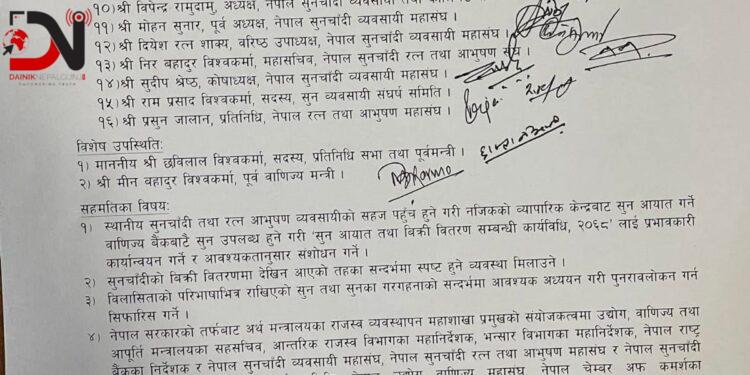 DN
DAINIKNEPALGUNJ
EMPOWERING TRUTH
१०) श्री विपेन्द्र रामुदामु, अध्यक्ष, नेपाल सुनचाँदी व्यवसायी
११) श्री मोहन सुनार, पूर्व अध्यक्ष, नेपाल सुनचाँदी व्यवसायी महासंघ ।
१२) श्री दियेश रत्न शाक्य, वरिष्ठ उपाध्यक्ष, नेपाल सुनचाँदी व्यवसायी महासंघ ।
१३) श्री निर बहादुर विश्वकर्मा, महासचिव, नेपाल सुनचाँदी रत्न तथा आभुषण संघ ।
१४) श्री सुदीप श्रेष्ठ, कोषाध्यक्ष, नेपाल सुनचाँदी व्यवसायी महासंघ ।
१५) श्री राम प्रसाद विश्वकर्मा, सदस्य, सुन व्यवसायी संघर्ष समिति ।
१६) श्री प्रसुन जालान, प्रतिनिधि, नेपाल रत्न तथा आभुषण महासंघ ।
विशेष उपस्थितिः
१) माननीय श्री छविलाल विश्वकर्मा, सदस्य, प्रतिनिधि सभा तथा पूर्वमन्त्री ।
२) श्री मीन बहादुर विश्वकर्मा, पूर्व वाणिज्य मन्त्री ।
सहमतिका विषयः
१) स्थानीय सुनचाँदी तथा रत्न आभुषण व्यवसायीको सहज पहुँच हुने गरी नजिकको व्यापारिक केन्द्रबाट सुन आयात गर्ने
वाणिज्य बैंकबाटै सुन उपलब्ध हुने गरी 'सुन आयात तथा बिक्री वितरण सम्बन्धी कार्यविधि, २०६८' लाई प्रभावकारी
कार्यान्वयन गर्ने र आवश्यकतानुसार संशोधन गर्ने ।
२) सुनचाँदीको बिक्री वितरणमा देखिन आएको तहका सन्दर्भमा स्पष्ट हुने व्यवस्था मिलाउने ।
३) विलासिताको परिभाषाभित्र राखिएको सुन तथा सुनका गरगहनाको सन्दर्भमा आवश्यक अध्ययन गरी पुनरावलोकन गर्न
सिफारिस गर्ने ।
४) नेपाल सरकारको तर्फबाट अर्थ मन्त्रालयका राजस्व व्यवस्थापन महाशाखा प्रमुखको संयोजकत्वमा उद्योग, वाणिज्य तथा
आपूर्ति मन्त्रालयका सहसचिव, आन्तरिक राजस्व विभागका महानिर्देशक, भन्सार विभागका महानिर्देशक, नेपाल राष्ट्र
बैंकका निर्देशक र नेपाल सुनचाँदी व्यवसायी महासंघ, नेपाल सुनचाँदी रत्न तथा आभुषण महासंघ र नेपाल सुनचाँदी
उद्योग वाणिज्य महासंघ, नेपाल चेम्बर अफ कमर्शका